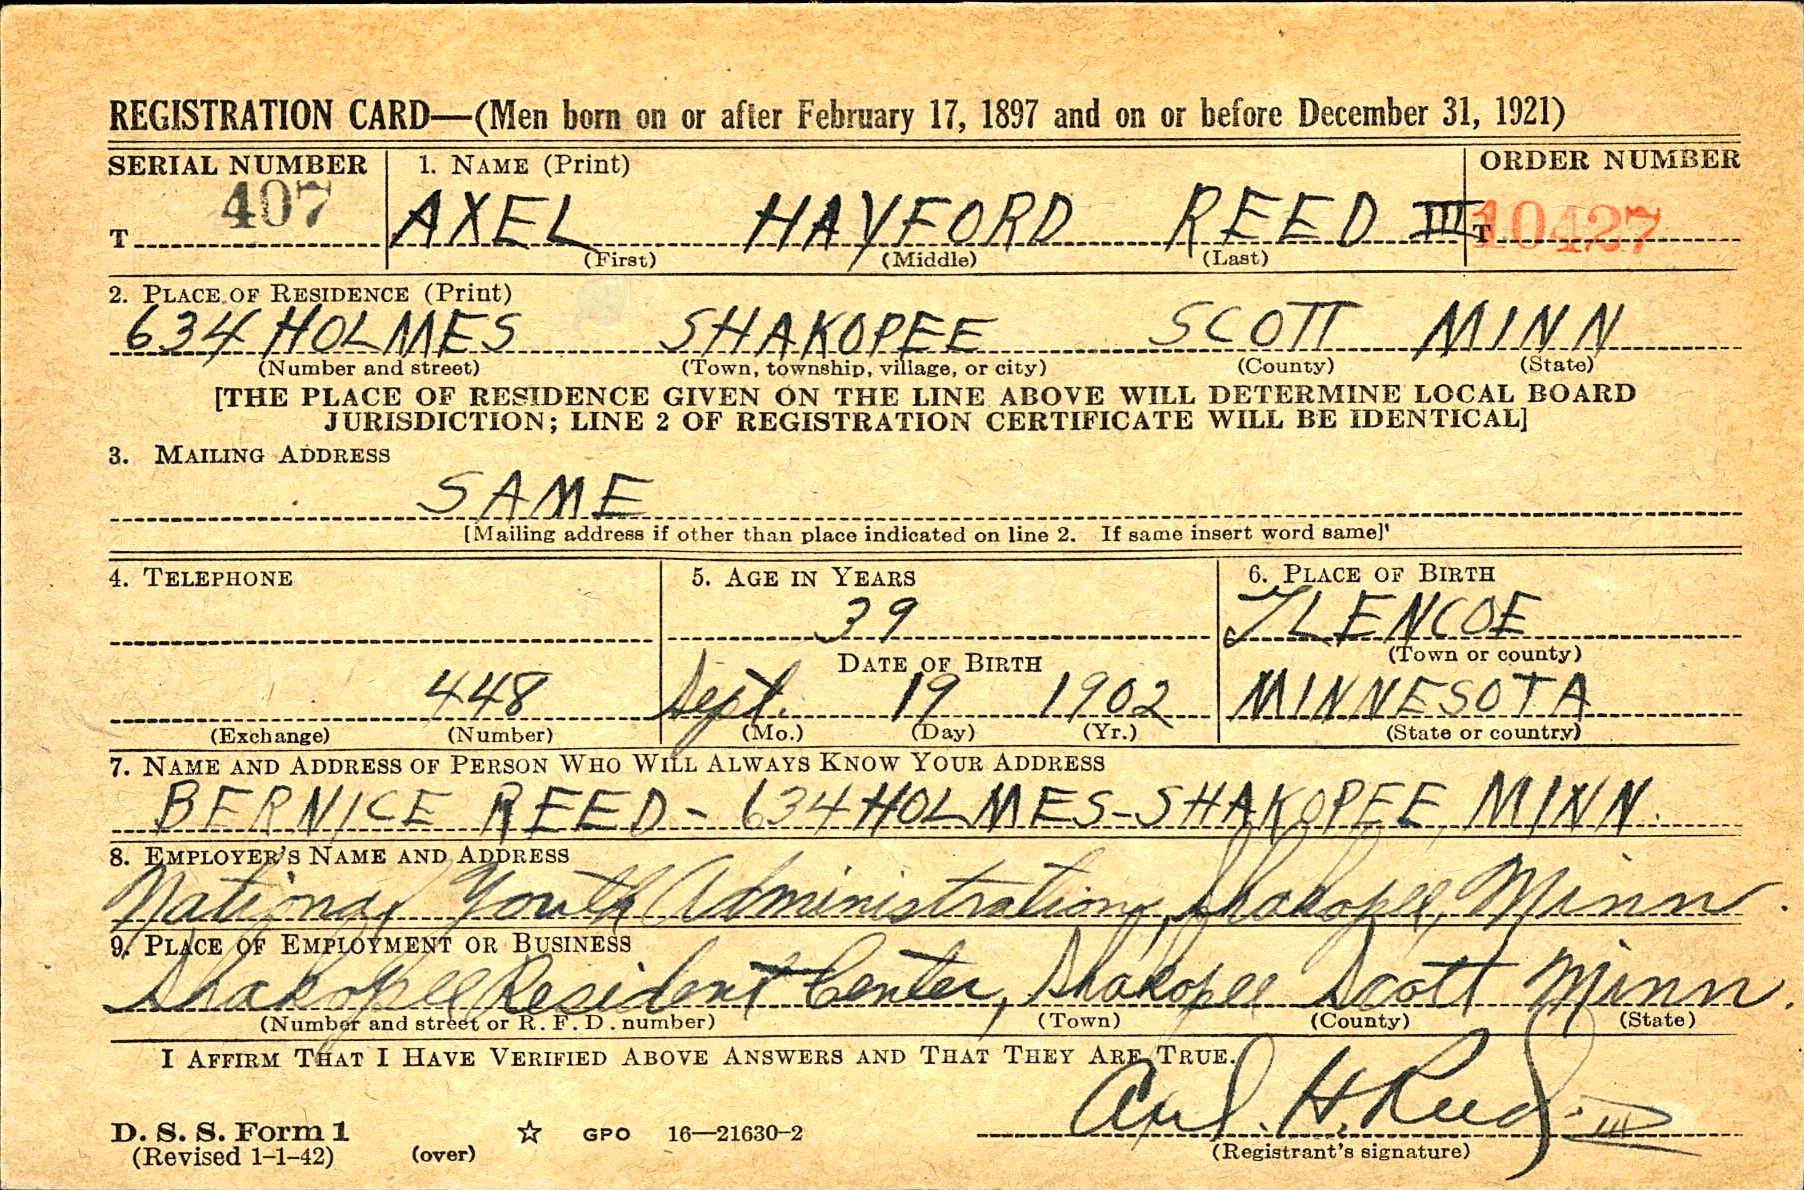 REGISTRATION CARD—(Men born on or after February 17, 1897 and on or before December 31, 1921)
SERIAL NUMBER 1. NAME (Print) ORDER NUMBER
T 407 AXEL HAYFORD REED III T 10427
(First) (Middle) (Last)
2. PLACE OF RESIDENCE (Print)
634 HOLMES SHAKOPEE SCOTT MINN
(Number and street) (Town, township, village, or city) (County) (State)
[THE PLACE OF RESIDENCE GIVEN ON THE LINE ABOVE WILL DETERMINE LOCAL BOARD
JURISDICTION; LINE 2 OF REGISTRATION CERTIFICATE WILL BE IDENTICAL]
3. MAILING ADDRESS
SAME
[Mailing address if other than place indicated on line 2. If same insert word same]
4. TELEPHONE 5. AGE IN YEARS 6. PLACE OF BIRTH
39 GLENCOE
DATE OF BIRTH (Town or county)
448 Sept. 19 1902 MINNESOTA
(Exchange) (Number) (Mo.) (Day) (Yr.) (State or country)
7. NAME AND ADDRESS OF PERSON WHO WILL ALWAYS KNOW YOUR ADDRESS
BERNICE REED - 634 HOLMES - SHAKOPEE, MINN.
8. EMPLOYER'S NAME AND ADDRESS
National Youth Administration, Shakopee, Minn.
9. PLACE OF EMPLOYMENT OR BUSINESS
Shakopee Resident Center, Shakopee Scott Minn.
(Number and street or R. F. D. number) (Town) (County) (State)
I AFFIRM THAT I HAVE VERIFIED ABOVE ANSWERS AND THAT THEY ARE TRUE.
Axel. H. Reed. III
D. S. S. Form 1
(Revised 1-1-42) (over) ☆ GPO 16—21630-2 (Registrant's signature)